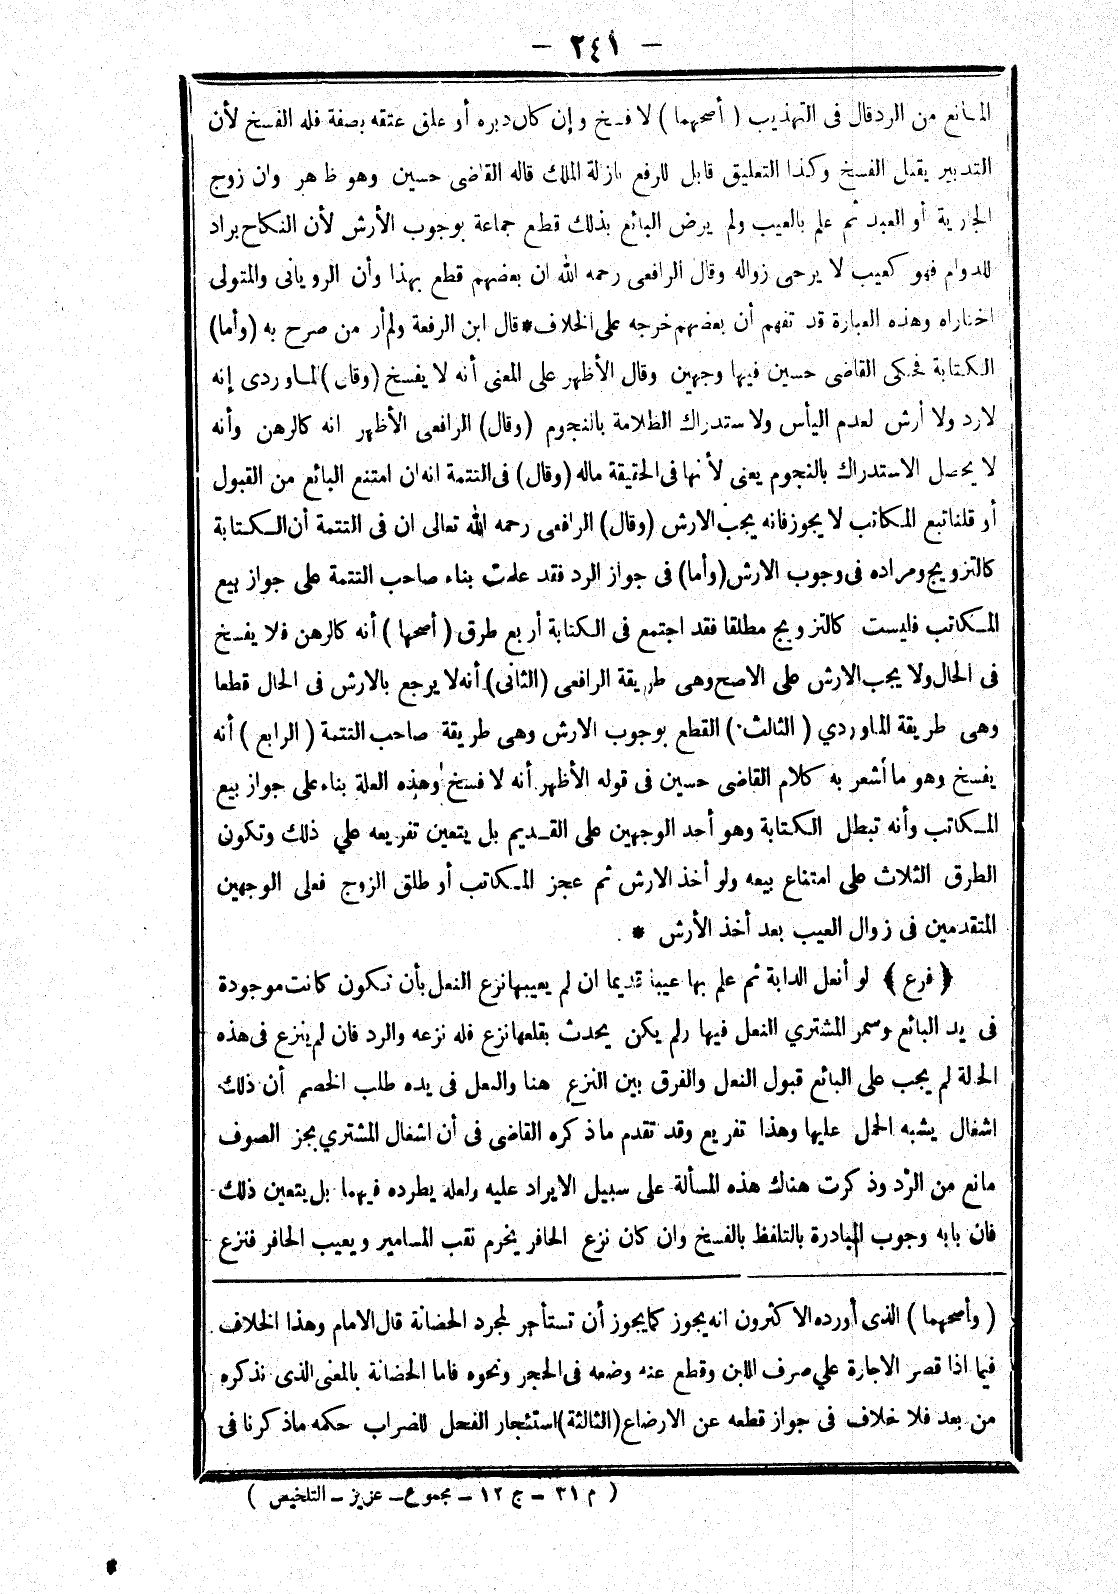 — ٢٤١ —
المانع من الرد قال فى التهذيب ( أصحهما ) لا فسخ وإن كان دبره أو علق عتقه بصفة فله الفسخ لأن
التدبير يقبل الفسخ وكذا التعليق قابل للرفع بازالة الملك قاله القاضى حسين وهو ظاهر وان زوج
الجارية أو العبد ثم علم بالعيب ولم يرض البائع بذلك قطع جماعة بوجوب الأرش لأن النكاح يراد
للدوام فهو كعيب لا يرجى زواله وقال الرافعى رحمه الله ان بعضهم قطع بهذا وأن الرويانى والمتولى
اختاراه وهذه العبارة قد تفهم أن بعضهم خرجه على الخلاف * قال ابن الرفعة ولم أر من صرح به (وأما)
الكتابة فحكى القاضى حسين فيها وجهين وقال الأظهر على المعنى أنه لا يفسخ (وقال) الماوردى إنه
لا رد ولا أرش لعدم اليأس ولاستدراك الظلامة بالنجوم (وقال) الرافعى الأظهر انه كالرهن وأنه
لا يحصل الاستدراك بالنجوم يعنى لأنها فى الحقيقة ماله (وقال) فى التتمة انه ان امتنع البائع من القبول
أو قلنا تبع المكاتب لا يجوز فانه يجب الارش (وقال) الرافعى رحمه الله تعالى ان فى التتمة أن الكتابة
كالتزويج ومراده فى وجوب الارش (وأما) فى جواز الرد فقد علمت بناء صاحب التتمة على جواز بيع
المكاتب فليست كالتزويج مطلقا فقد اجتمع فى الكتابة أربع طرق ( أصحها ) أنه كالرهن فلا يفسخ
فى الحال ولا يجب الارش على الاصح وهى طريقة الرافعى (الثانى) أنه لا يرجع بالارش فى الحال قطعا
وهى طريقة الماوردي ( الثالث ) القطع بوجوب الارش وهى طريقة صاحب التتمة ( الرابع ) أنه
يفسخ وهو ما أشعر به كلام القاضى حسين فى قوله الأظهر أنه لا فسخ وهذه العلة بناء على جواز بيع
المكاتب وأنه تبطل الكتابة وهو أحد الوجهين على القديم بل يتعين تفريعه علي ذلك وتكون
الطرق الثلاث على امتناع بيعه ولو أخذ الارش ثم عجز المكاتب أو طلق الزوج فعلى الوجهين
المتقدمين فى زوال العيب بعد أخذ الأرش *
﴿ فرع ﴾ لو أنعل الدابة ثم علم بها عيبا قديما ان لم يعيبها نزع النعل بأن تكون كانت موجودة
فى يد البائع وسمر المشتري النعل فيها ولم يكن يحدث بقلعها نزع فله نزعه والرد فان لم ينزع فى هذه
الحالة لم يجب على البائع قبول النعل والفرق بين النزع هنا والنعل فى يده طلب الخصم أن ذلك
اشغال يشبه الحمل عليها وهذا تفريع وقد تقدم ما ذكره القاضى فى أن اشغال المشتري بجز الصوف
مانع من الرد وذكرت هناك هذه المسألة على سبيل الايراد عليه ولعله يطرده فيهما بل يتعين ذلك
فان بابه وجوب المبادرة بالتلفظ بالفسخ وان كان نزع الحافر يخرم نقب المسامير ويعيب الحافر فنزع
( وأصحهما ) الذى أورده الاكثرون انه يجوز كما يجوز أن تستأجر لمجرد الحضانة قال الامام وهذا الخلاف
فيما اذا قصر الاجارة علي صرف اللبن وقطع عنه وضعه فى الحجر ونحوه فاما الحضانة بالمعنى الذى نذكره
من بعد فلا خلاف فى جواز قطعه عن الارضاع (الثالثة) استئجار الفحل للضراب حكمه ما ذكرنا فى
( م ٣١ – ج ١٢ – مجموع – عزيز – التلخيص )